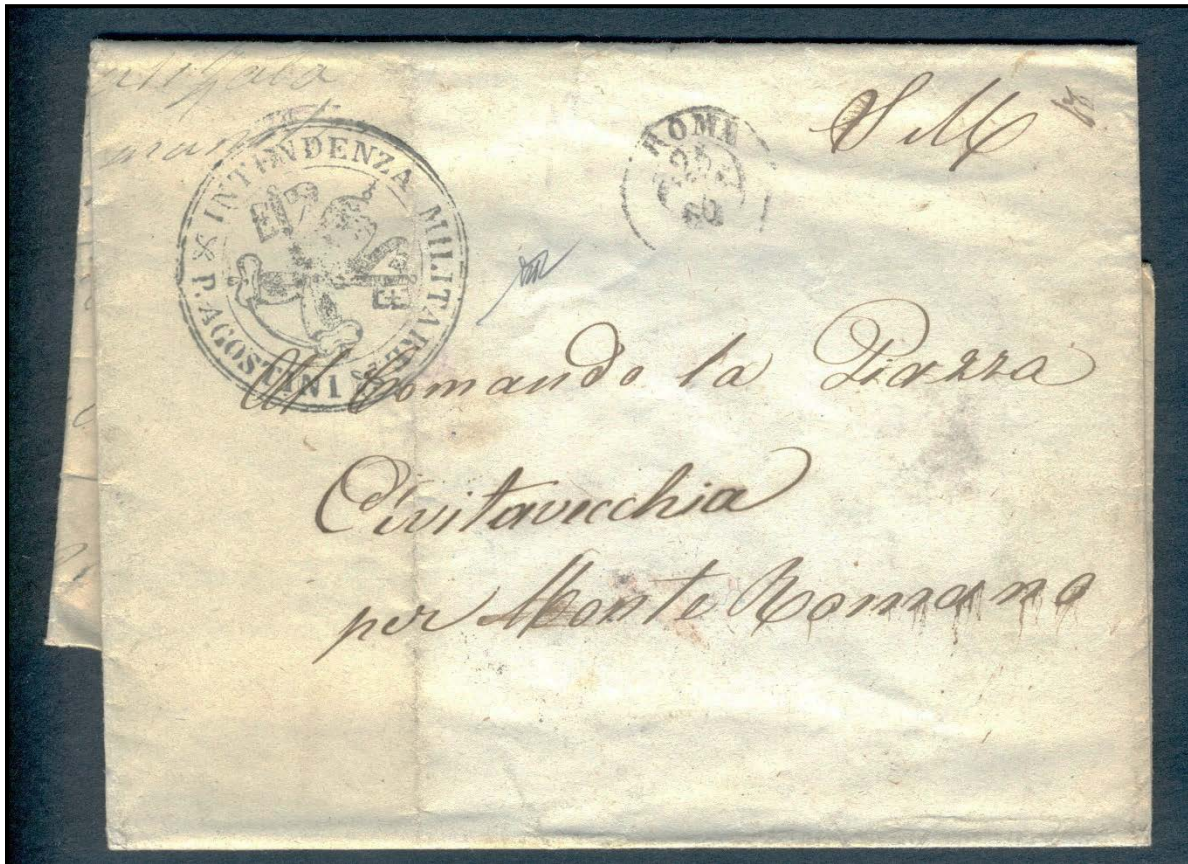 INTENDENZA MILITARE
P. AGOSTINI
ROME
25
60
S M
Al Comando la Piazza
Civitavecchia
per Monte Romano